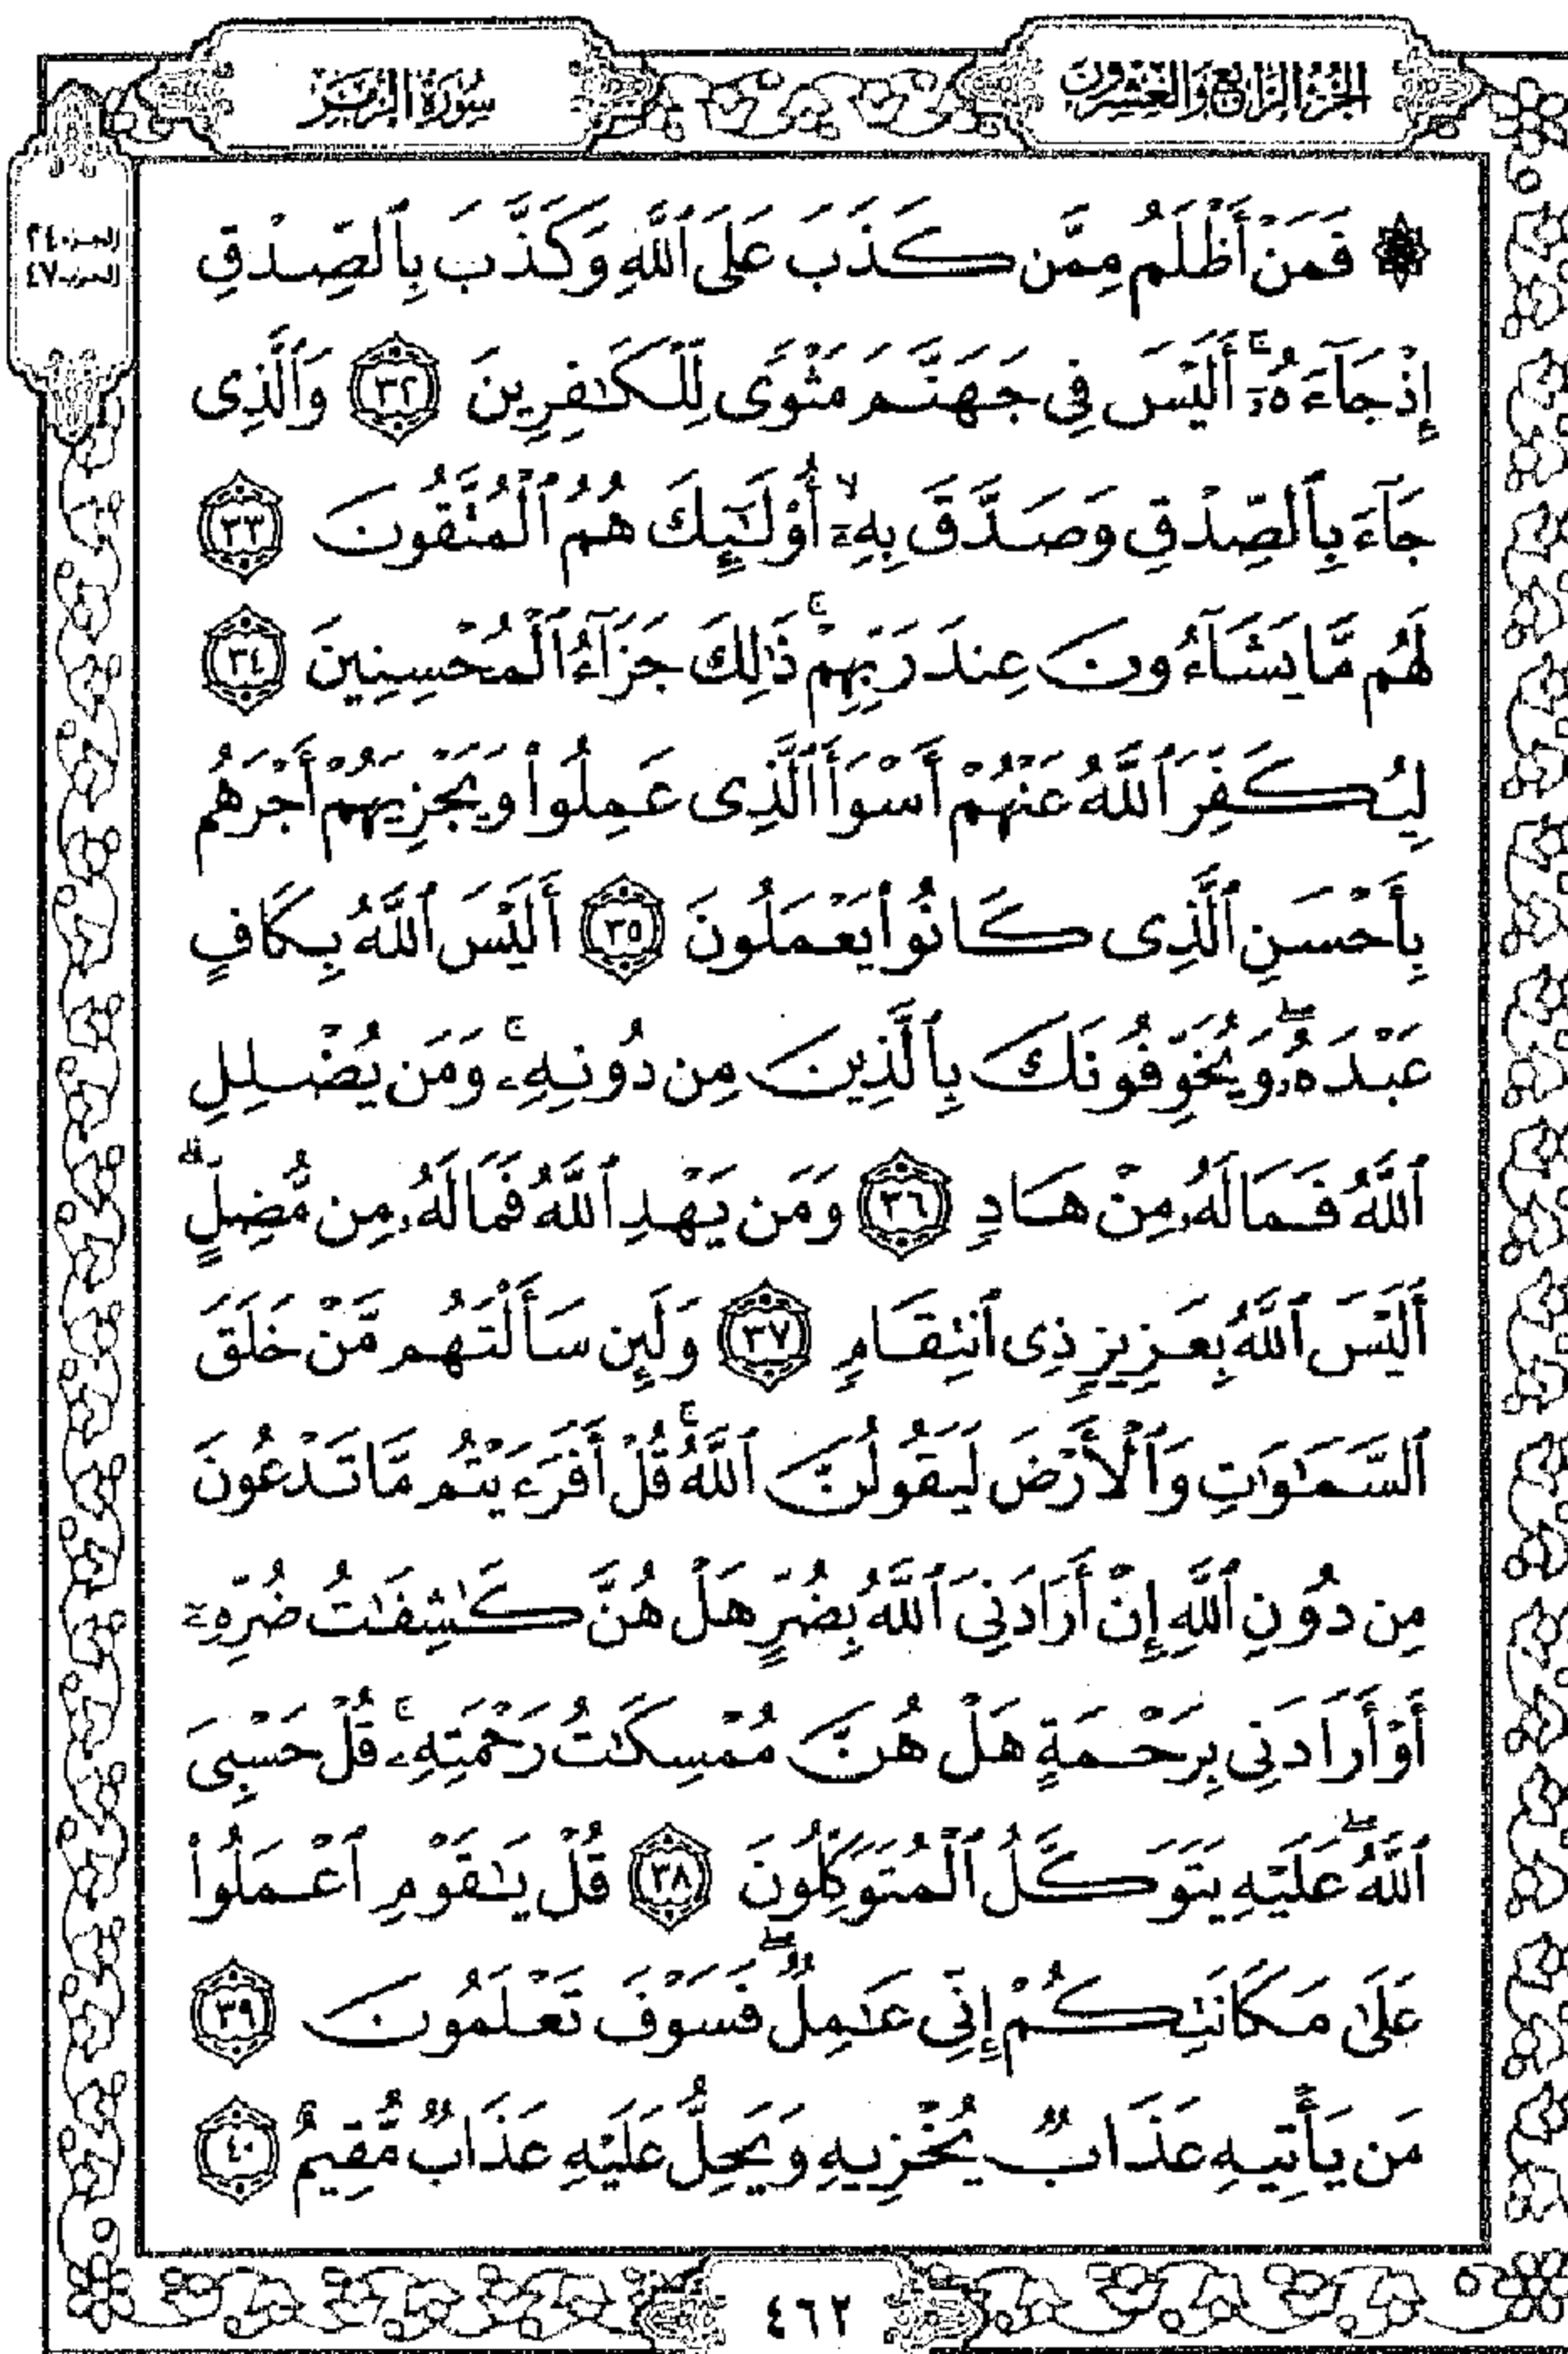 الجزء الرابع والعشرون
سورة الزمر
الجزء ٢٤
الحزب ٤٧
۞ فَمَنْ أَظْلَمُ مِمَّن كَذَبَ عَلَى ٱللَّهِ وَكَذَّبَ بِٱلصِّدْقِ
إِذْ جَآءَهُۥٓ ۚ أَلَيْسَ فِى جَهَنَّمَ مَثْوًى لِّلْكَـٰفِرِينَ ٣٢ وَٱلَّذِى
جَآءَ بِٱلصِّدْقِ وَصَدَّقَ بِهِۦٓ ۙ أُو۟لَـٰٓئِكَ هُمُ ٱلْمُتَّقُونَ ٣٣
لَهُم مَّا يَشَآءُونَ عِندَ رَبِّهِمْ ۚ ذَٰلِكَ جَزَآءُ ٱلْمُحْسِنِينَ ٣٤
لِيُكَفِّرَ ٱللَّهُ عَنْهُمْ أَسْوَأَ ٱلَّذِى عَمِلُوا۟ وَيَجْزِيَهُمْ أَجْرَهُم
بِأَحْسَنِ ٱلَّذِى كَانُوا۟ يَعْمَلُونَ ٣٥ أَلَيْسَ ٱللَّهُ بِكَافٍ
عَبْدَهُۥ ۖ وَيُخَوِّفُونَكَ بِٱلَّذِينَ مِن دُونِهِۦ ۚ وَمَن يُضْلِلِ
ٱللَّهُ فَمَا لَهُۥ مِنْ هَادٍ ٣٦ وَمَن يَهْدِ ٱللَّهُ فَمَا لَهُۥ مِن مُّضِلٍّ ۗ
أَلَيْسَ ٱللَّهُ بِعَزِيزٍ ذِى ٱنتِقَامٍ ٣٧ وَلَئِن سَأَلْتَهُم مَّنْ خَلَقَ
ٱلسَّمَـٰوَٰتِ وَٱلْأَرْضَ لَيَقُولُنَّ ٱللَّهُ ۚ قُلْ أَفَرَءَيْتُم مَّا تَدْعُونَ
مِن دُونِ ٱللَّهِ إِنْ أَرَادَنِىَ ٱللَّهُ بِضُرٍّ هَلْ هُنَّ كَـٰشِفَـٰتُ ضُرِّهِۦٓ
أَوْ أَرَادَنِى بِرَحْمَةٍ هَلْ هُنَّ مُمْسِكَـٰتُ رَحْمَتِهِۦ ۚ قُلْ حَسْبِىَ
ٱللَّهُ ۖ عَلَيْهِ يَتَوَكَّلُ ٱلْمُتَوَكِّلُونَ ٣٨ قُلْ يَـٰقَوْمِ ٱعْمَلُوا۟
عَلَىٰ مَكَانَتِكُمْ إِنِّى عَـٰمِلٌ ۖ فَسَوْفَ تَعْلَمُونَ ٣٩
مَن يَأْتِيهِ عَذَابٌ يُخْزِيهِ وَيَحِلُّ عَلَيْهِ عَذَابٌ مُّقِيمٌ ٤٠
٤٦٢